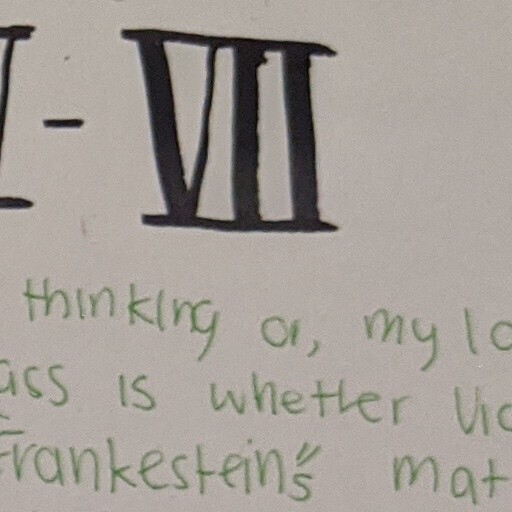 I - VII
thinking a, my lo
ass is whether Vic
Frankestein's mat